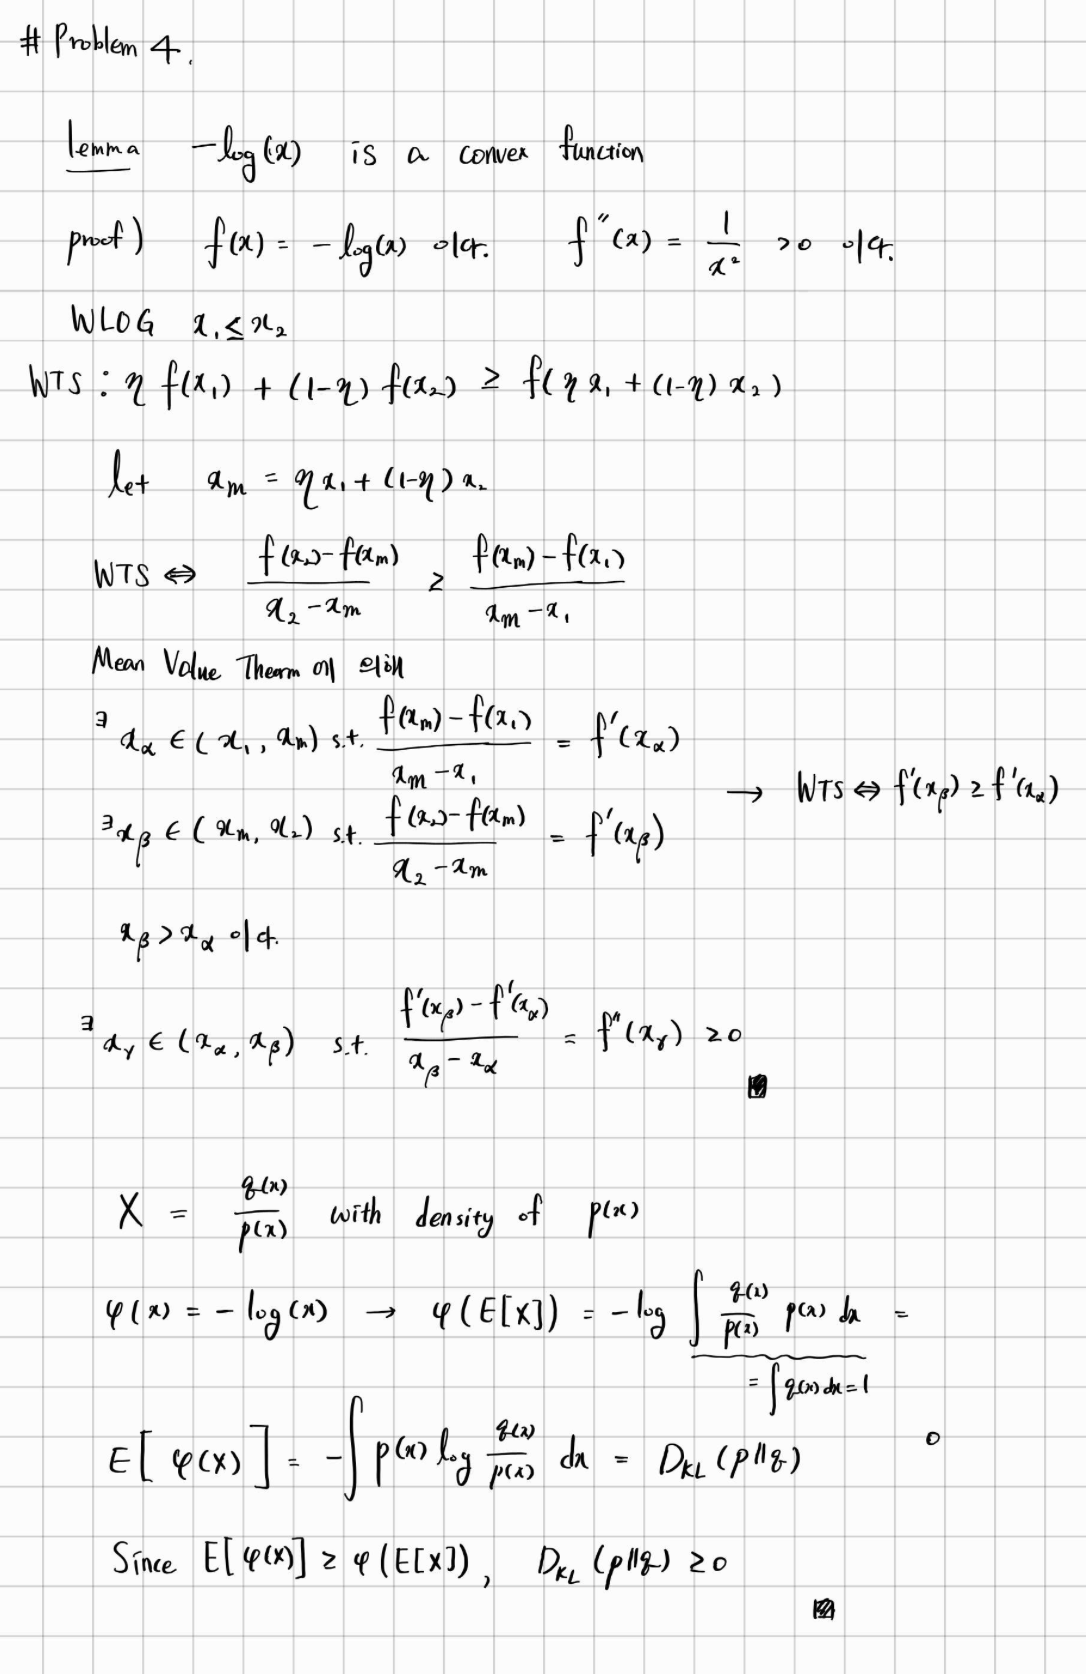 # Problem 4.
lemma −log(x) is a convex function
proof) f(x) = −log(x) 이다. f''(x) = 1/x² >0 이다.
WLOG x₁ ≤ x₂
WTS : η f(x₁) + (1-η) f(x₂) ≥ f(η x₁ + (1-η) x₂)
let x_m = η x₁ + (1-η) x₂
WTS ⇔ (f(x₂)-f(x_m))/(x₂-x_m) ≥ (f(x_m)-f(x₁))/(x_m-x₁)
Mean Value Theorm에 의해
∃ x_α ∈ (x₁, x_m) s.t. (f(x_m)-f(x₁))/(x_m-x₁) = f'(x_α)
→ WTS ⇔ f'(x_β) ≥ f'(x_α)
∃ x_β ∈ (x_m, x₂) s.t. (f(x₂)-f(x_m))/(x₂-x_m) = f'(x_β)
x_β > x_α 이다.
∃ x_γ ∈ (x_α, x_β) s.t. (f'(x_β)-f'(x_α))/(x_β-x_α) = f''(x_γ) ≥0
X = q(x)/p(x) with density of p(x)
φ(x) = −log(x) → φ(E[X]) = −log ∫ q(x)/p(x) p(x) dx = 0
= ∫ q(x) dx = 1
E[φ(X)] = −∫ p(x) log q(x)/p(x) dx = D_KL (p||q)
Since E[φ(X)] ≥ φ(E[X]), D_KL (p||q) ≥0